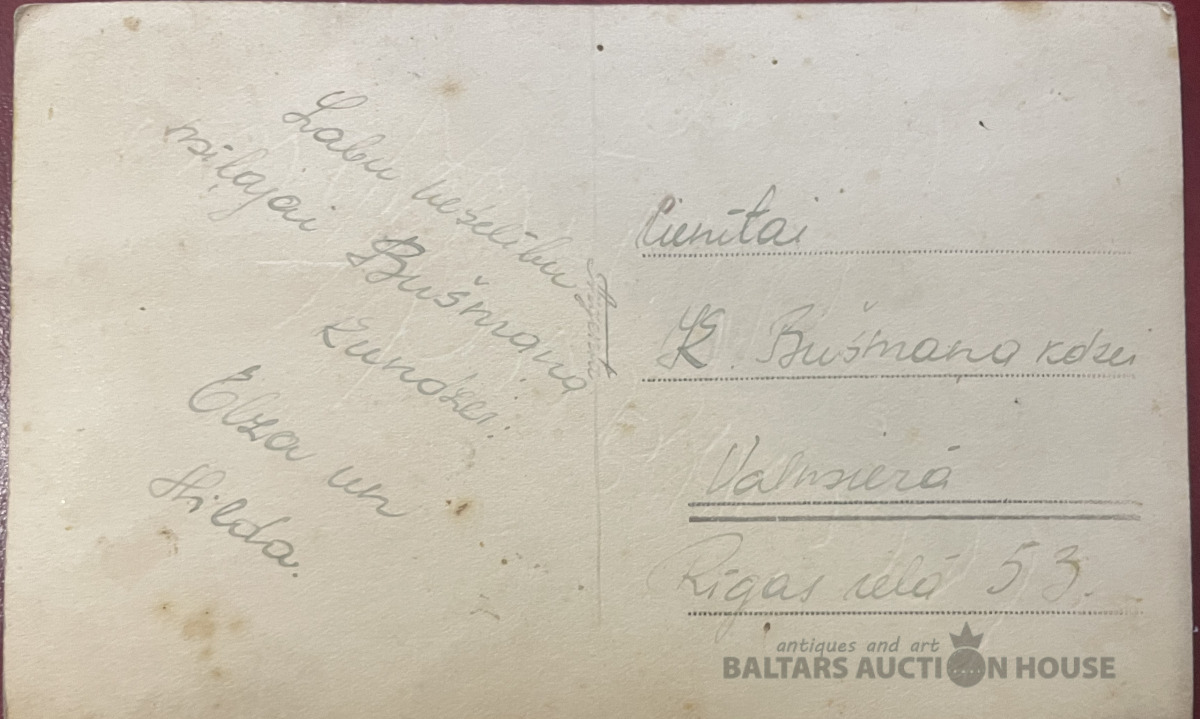 Labu veselību
mīļajai Bušmaņa
kundzei.
Elza un
Hilda.
Cienītai
K. Bušmaņa kdzei
Valmierā
Rīgas ielā 53.
antiques and art
BALTARS AUCTION HOUSE